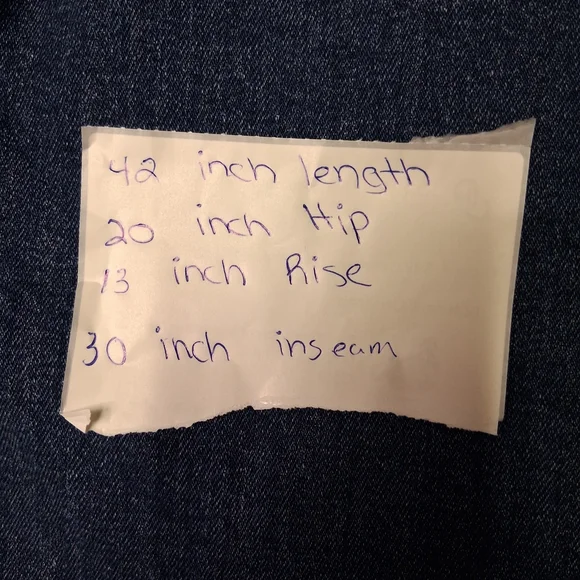 42 inch length
20 inch Hip
13 inch Rise
30 inch inseam